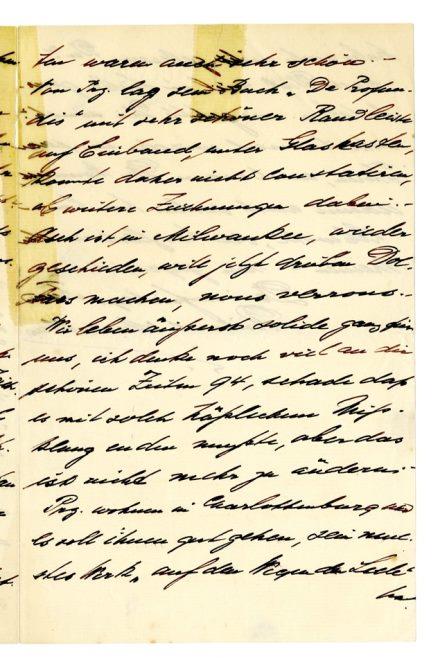 ten waren auch sehr schön. -
Von Prz. lag sein Buch „De Profun-
dis" mit sehr schöner Randleiste
auf Einband, unter Glaskasten,
konnte daher nicht constatiren,
ob weitere Zeichnungen dabei. -
Asch ist in Milwaukee, wieder
geschieden, will jetzt drüben Dol-
lars machen, nous verrons. -
Wir leben äußerst solide ganz für
uns, ich denke noch viel an die
schönen Zeiten 94, schade daß
es mit solch häßlichem Miß-
klang enden mußte, aber das
ist nicht mehr zu ändern. -
Prz. wohnen in Charlottenburg und
es soll ihnen gut gehen, sein neue-
stes Werk „auf den Wegen der Seele"